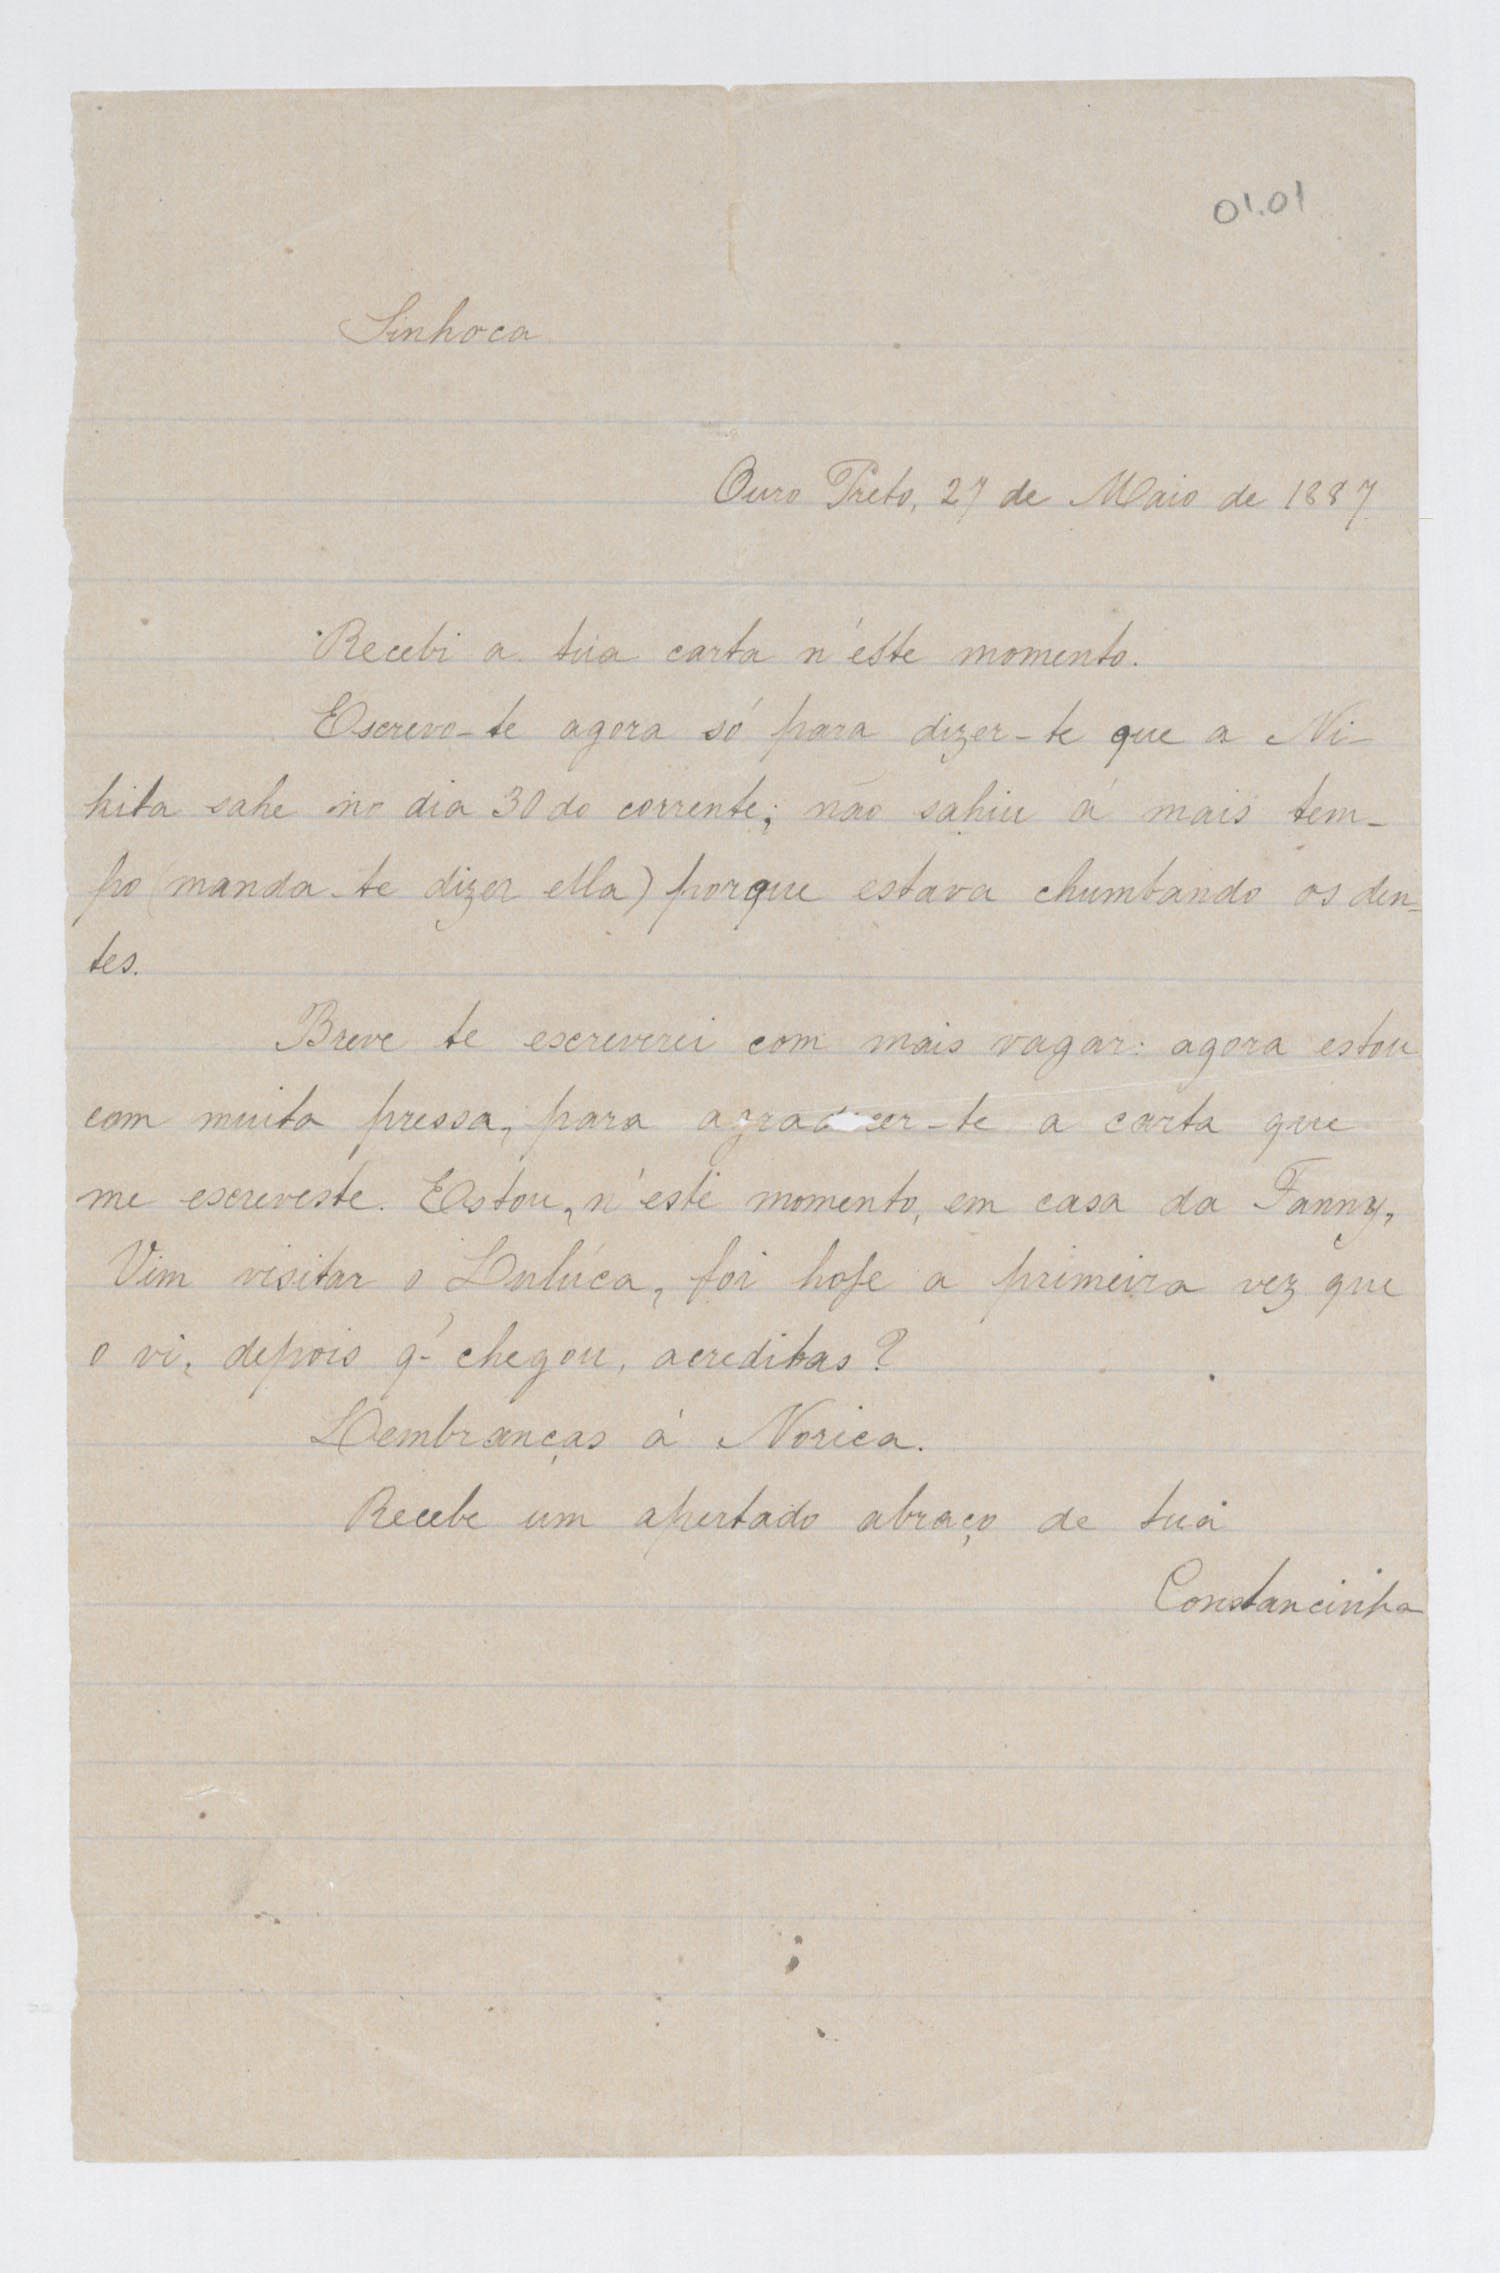 01.01
Sinhoca
Ouro Preto, 27 de Maio de 1887
Recebi a tua carta n'este momento.
Escrevo-te agora só para dizer-te que a Ni-
hita sahe no dia 30 do corrente; não sahiu á mais tem-
po (manda-te dizer ella) porque estava chumbando os den-
tes.
Breve te escreverei com mais vagar: agora estou
com muita pressa, para agradecer-te a carta que
me escreveste. Estou, n'este momento, em casa da Fanny,
Vim visitar o Lulúca, foi hoje a primeira vez que
o vi, depois q- chegou, acreditas?
Lembranças á Norica.
Recebe um apertado abraço de tua
Constancinha